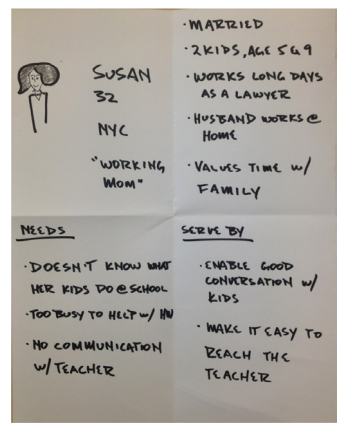 SUSAN
32
NYC
"WORKING
MOM"
· MARRIED
· 2 KIDS, AGE 5 & 9
· WORKS LONG DAYS
AS A LAWYER
· HUSBAND WORKS @
HOME
· VALUES TIME W/
FAMILY
NEEDS
· DOESN'T KNOW WHAT
HER KIDS DO @ SCHOOL
· TOO BUSY TO HELP W/ HW
· NO COMMUNICATION
W/ TEACHER
SERVE BY
· ENABLE GOOD
CONVERSATION W/
KIDS
· MAKE IT EASY TO
REACH THE
TEACHER